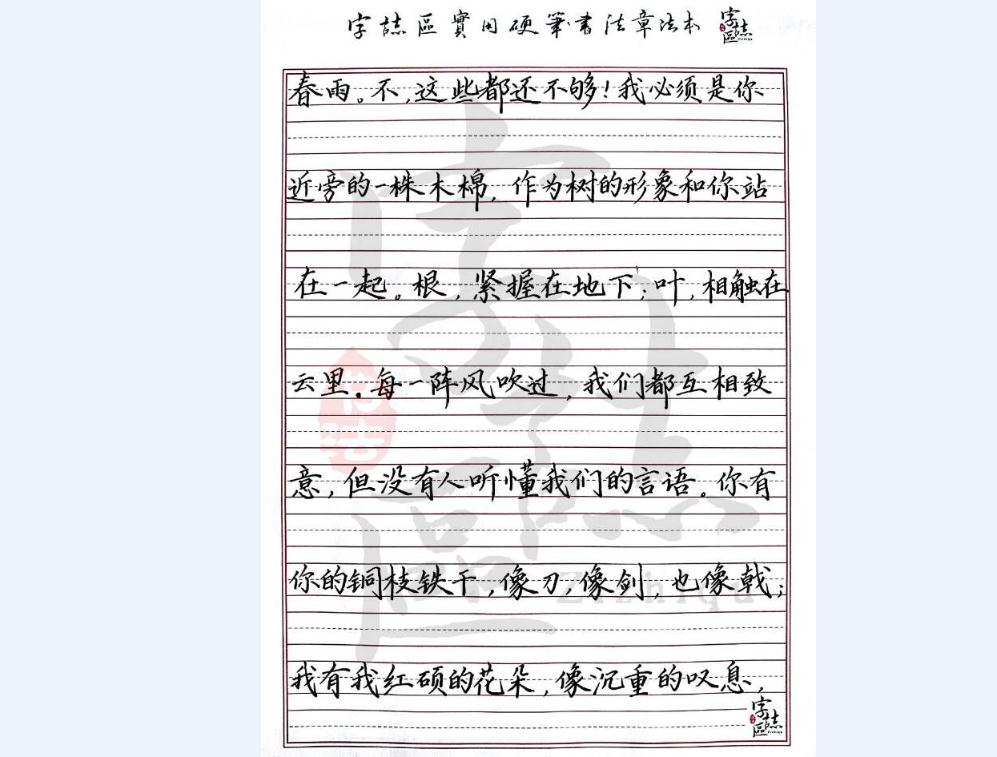 字誌區實用硬筆書法章法本
字誌區
春雨。不,这些都还不够!我必须是你
近旁的一株木棉,作为树的形象和你站
在一起。根,紧握在地下;叶,相触在
云里。每一阵风吹过,我们都互相致
意,但没有人听懂我们的言语。你有
你的铜枝铁干,像刀,像剑,也像戟;
我有我红硕的花朵,像沉重的叹息,
字誌區
Zizhiqu
字誌區